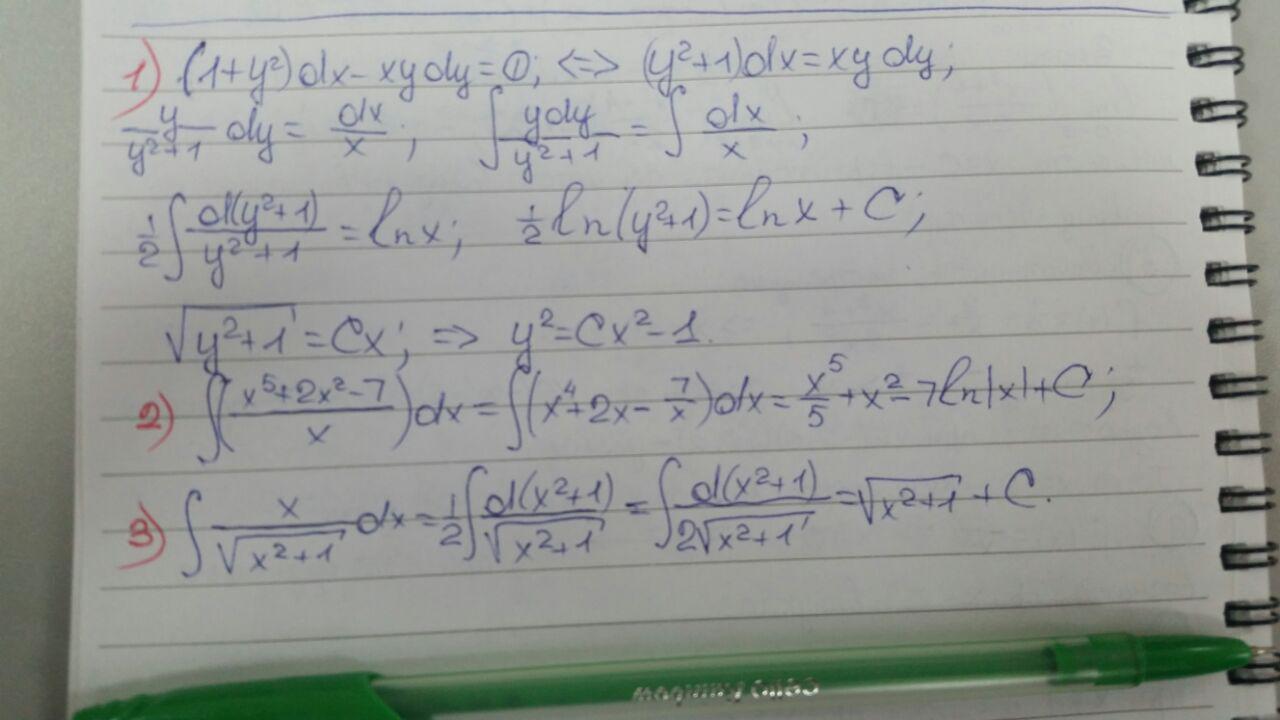 1) (1+y²)dx - xydy = 0; <=> (y²+1)dx = xydy;
y/(y²+1) dy = dx/x; ∫ ydy/(y²+1) = ∫ dx/x;
1/2 ∫ d(y²+1)/(y²+1) = ln x; 1/2 ln(y²+1) = ln x + C;
√(y²+1) = Cx; => y² = Cx² - 1.
2) ∫((x⁵+2x²-7)/x)dx = ∫(x⁴+2x-7/x)dx = x⁵/5 + x² - 7ln|x| + C;
3) ∫ x/√(x²+1) dx = 1/2 ∫ d(x²+1)/√(x²+1) = ∫ d(x²+1)/(2√(x²+1)) = √(x²+1) + C.